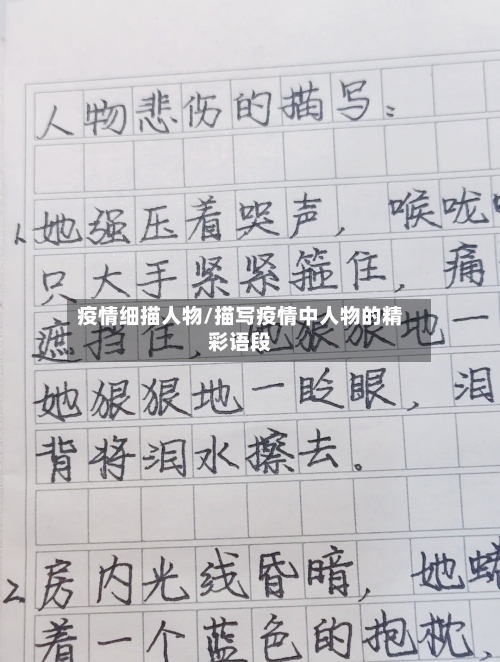 人物悲伤的描写:
1. 她强压着哭声,喉咙
只大手紧紧箍住,痛
疫情细描人物/描写疫情中人物的精
彩语段
遮挡住,她狠狠地一
她狠狠地一眨眼,泪
背将泪水擦去。
2. 房内光线昏暗,她
着一个蓝色的抱枕,